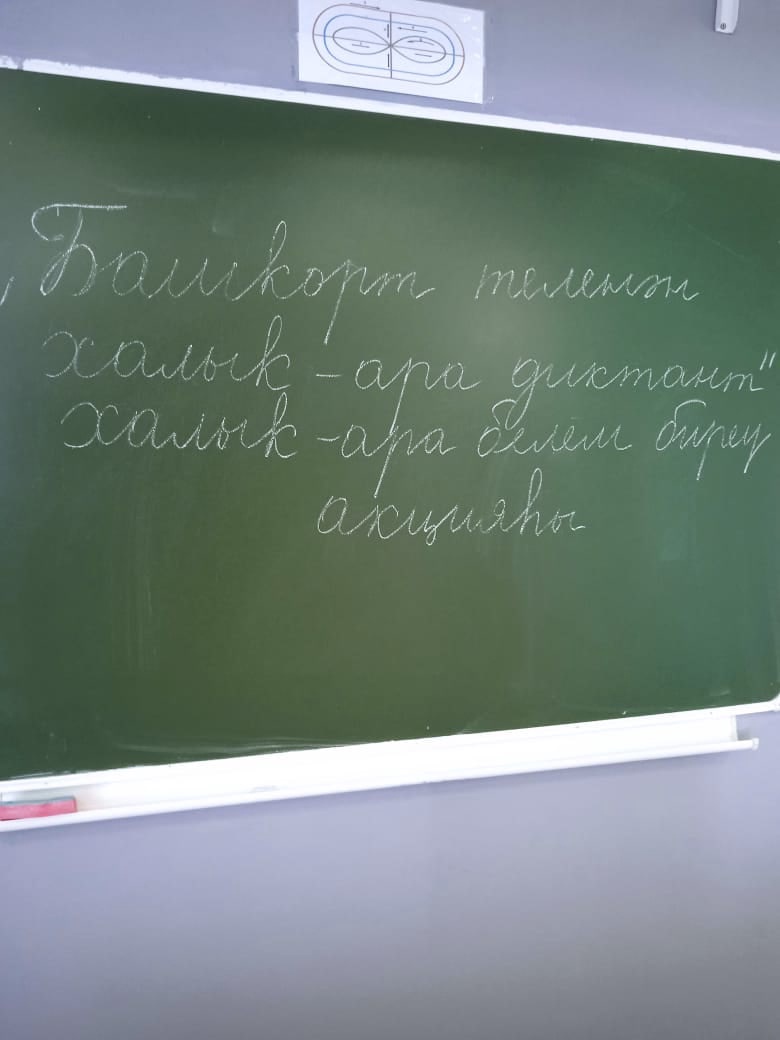 „Башкорт теленән
халык-ара диктант"
халык-ара белем биреу
акцияһы